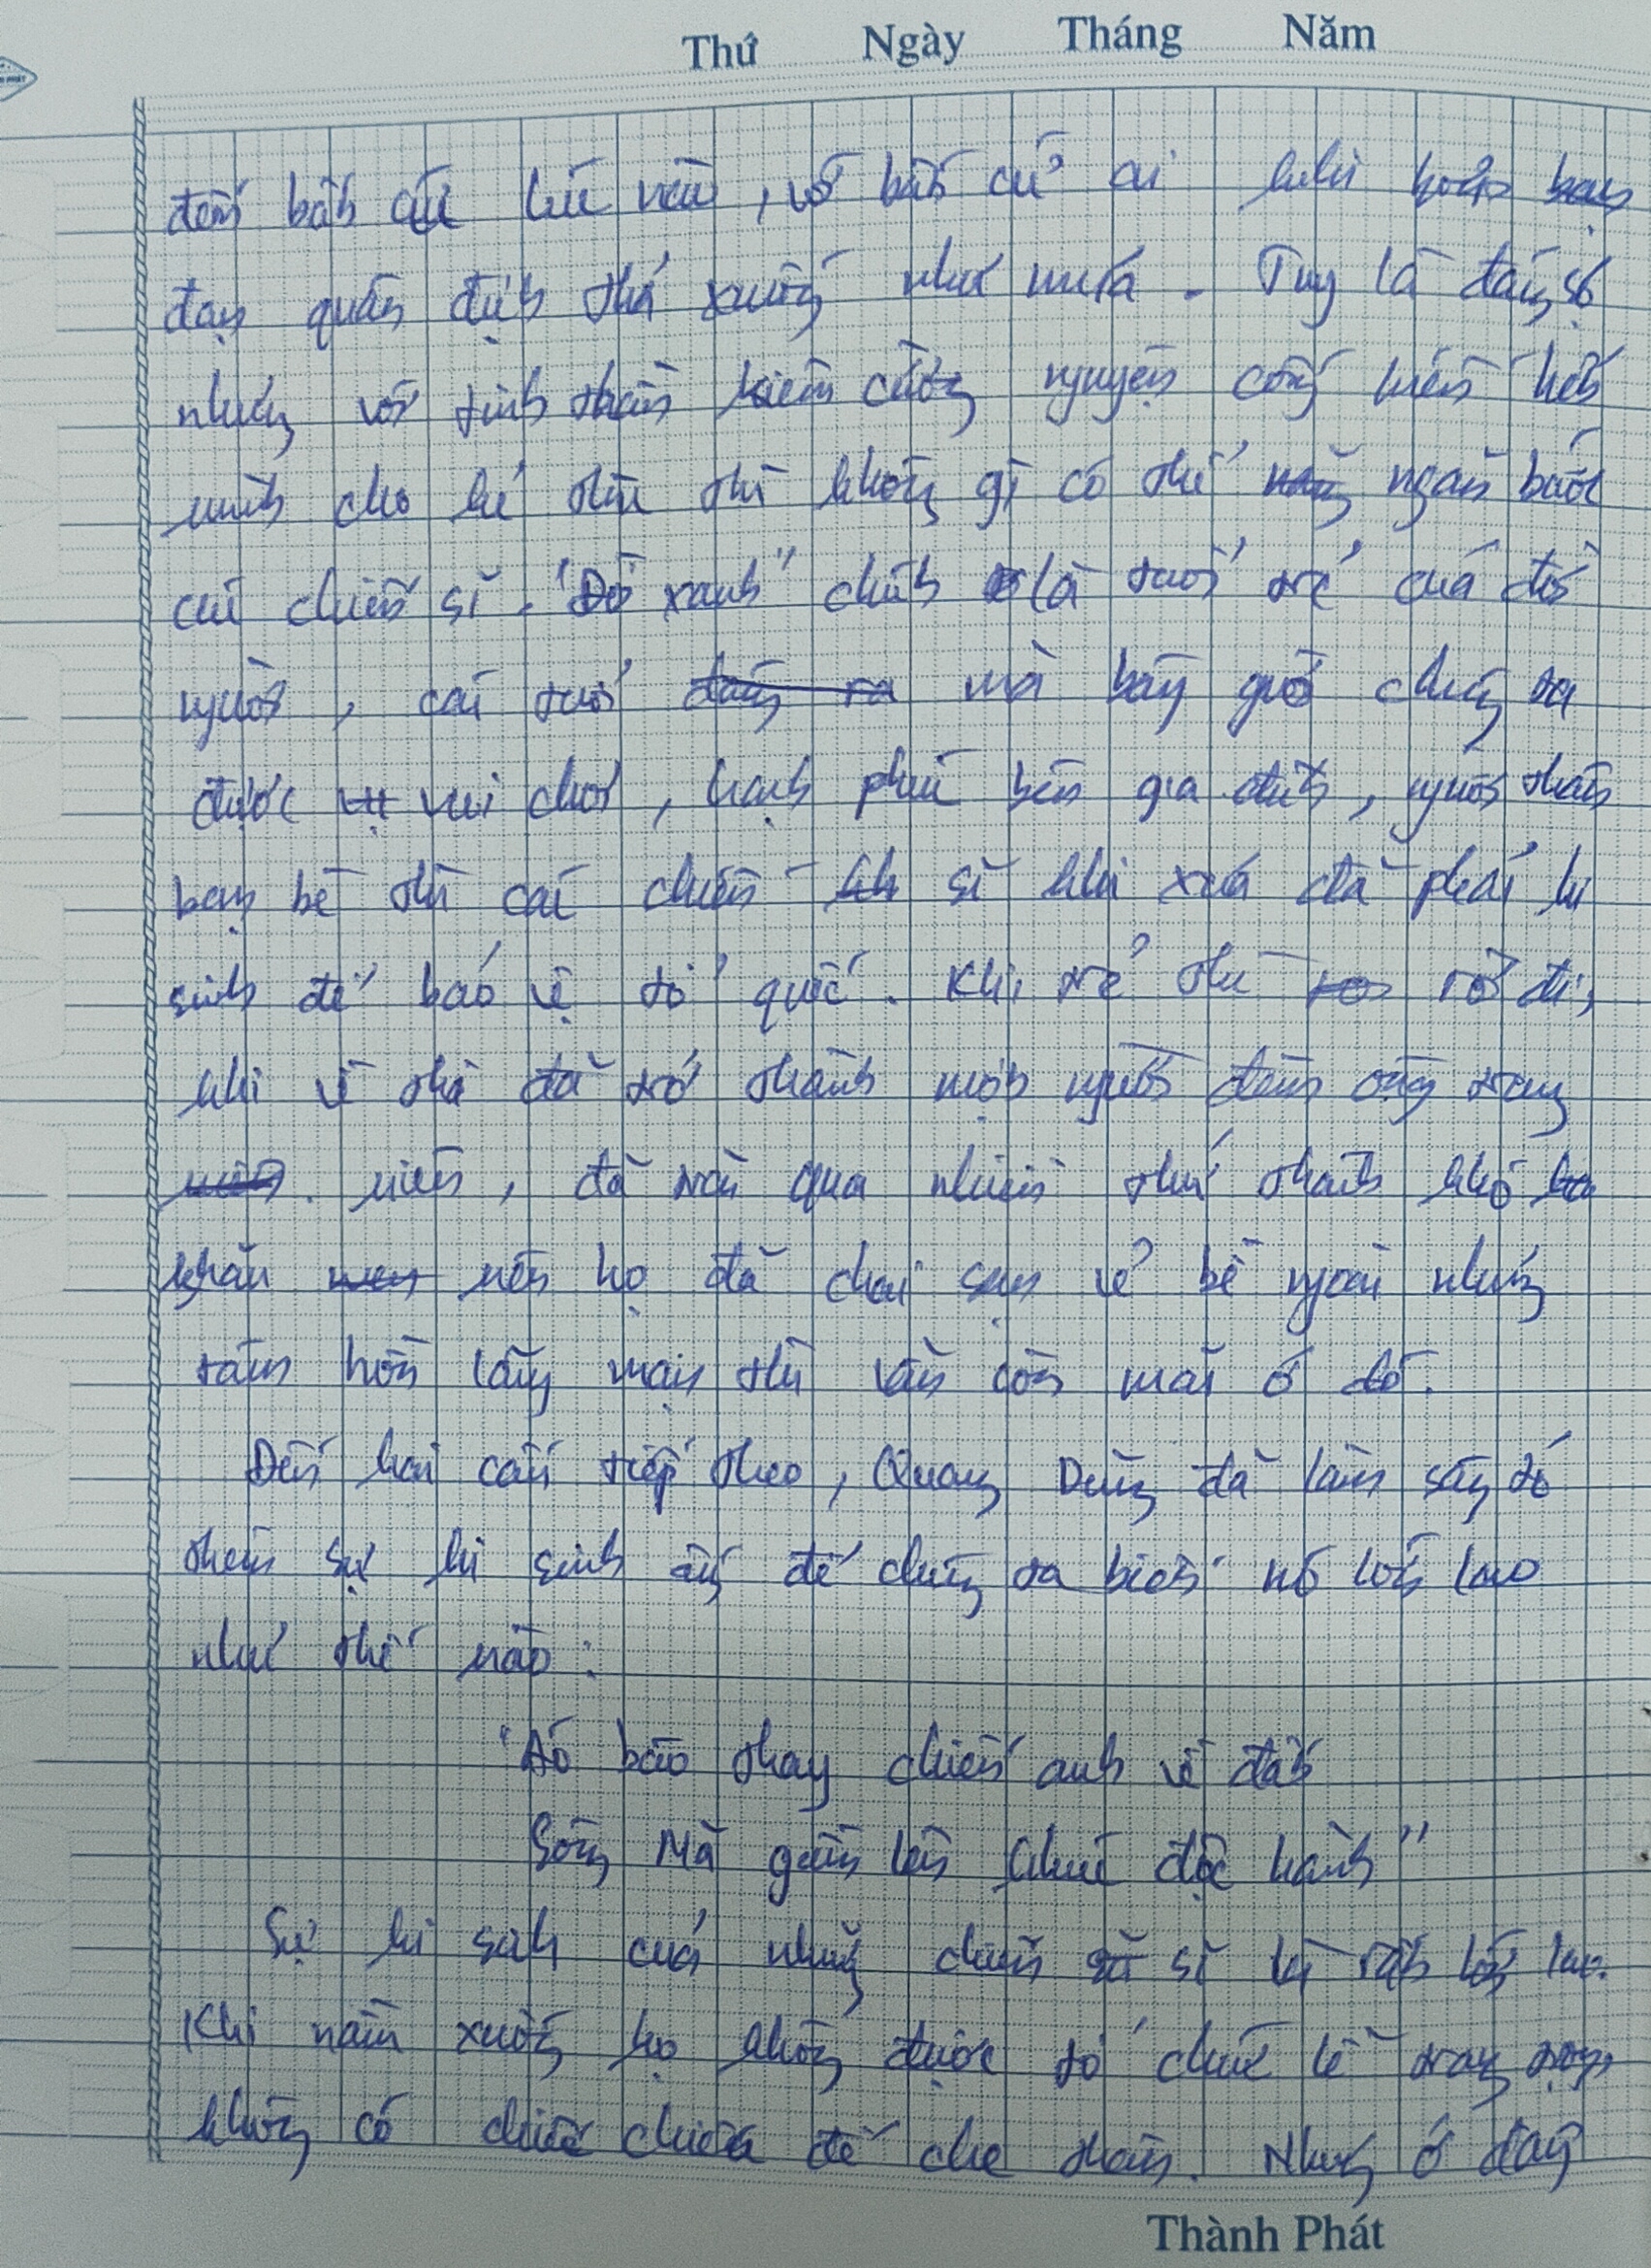 Thứ Ngày Tháng Năm
đến bất cứ lúc nào, với bất cứ ai khi bom
đạn quân địch thả xuống như mưa. Tuy là đáng sợ
nhưng với tinh thần kiên cường nguyện cống hiến hết
mình cho kẻ thù thì không gì có thể ngăn bước
các chiến sĩ. "Đời xanh" chính là tuổi trẻ của đời
người, cái tuổi mà bây giờ chúng ta
được vui chơi, hạnh phúc bên gia đình, người thân
bạn bè thì các chiến sĩ khi xưa đã phải hi
sinh để bảo vệ tổ quốc. Khi trẻ thì rời đi,
khi về thì đã trở thành một người đàn ông trung
niên, đã trải qua nhiều thử thách khó
khăn nên họ đã chai sạn vẻ bề ngoài nhưng
tâm hồn lãng mạn thì vẫn còn mãi ở đó.
Đến hai câu tiếp theo, Quang Dũng đã làm sáng tỏ
thêm sự hi sinh ấy để chúng ta biết nó lớn lao
như thế nào:
"Áo bào thay chiếu anh về đất
Sông Mã gầm lên khúc độc hành"
Sự hi sinh của những chiến sĩ là rất lớn lao.
Khi nằm xuống họ không được tổ chức lễ trang trọng
không có chiếc chiếu để che thân. Nhưng ở đây
Thành Phát